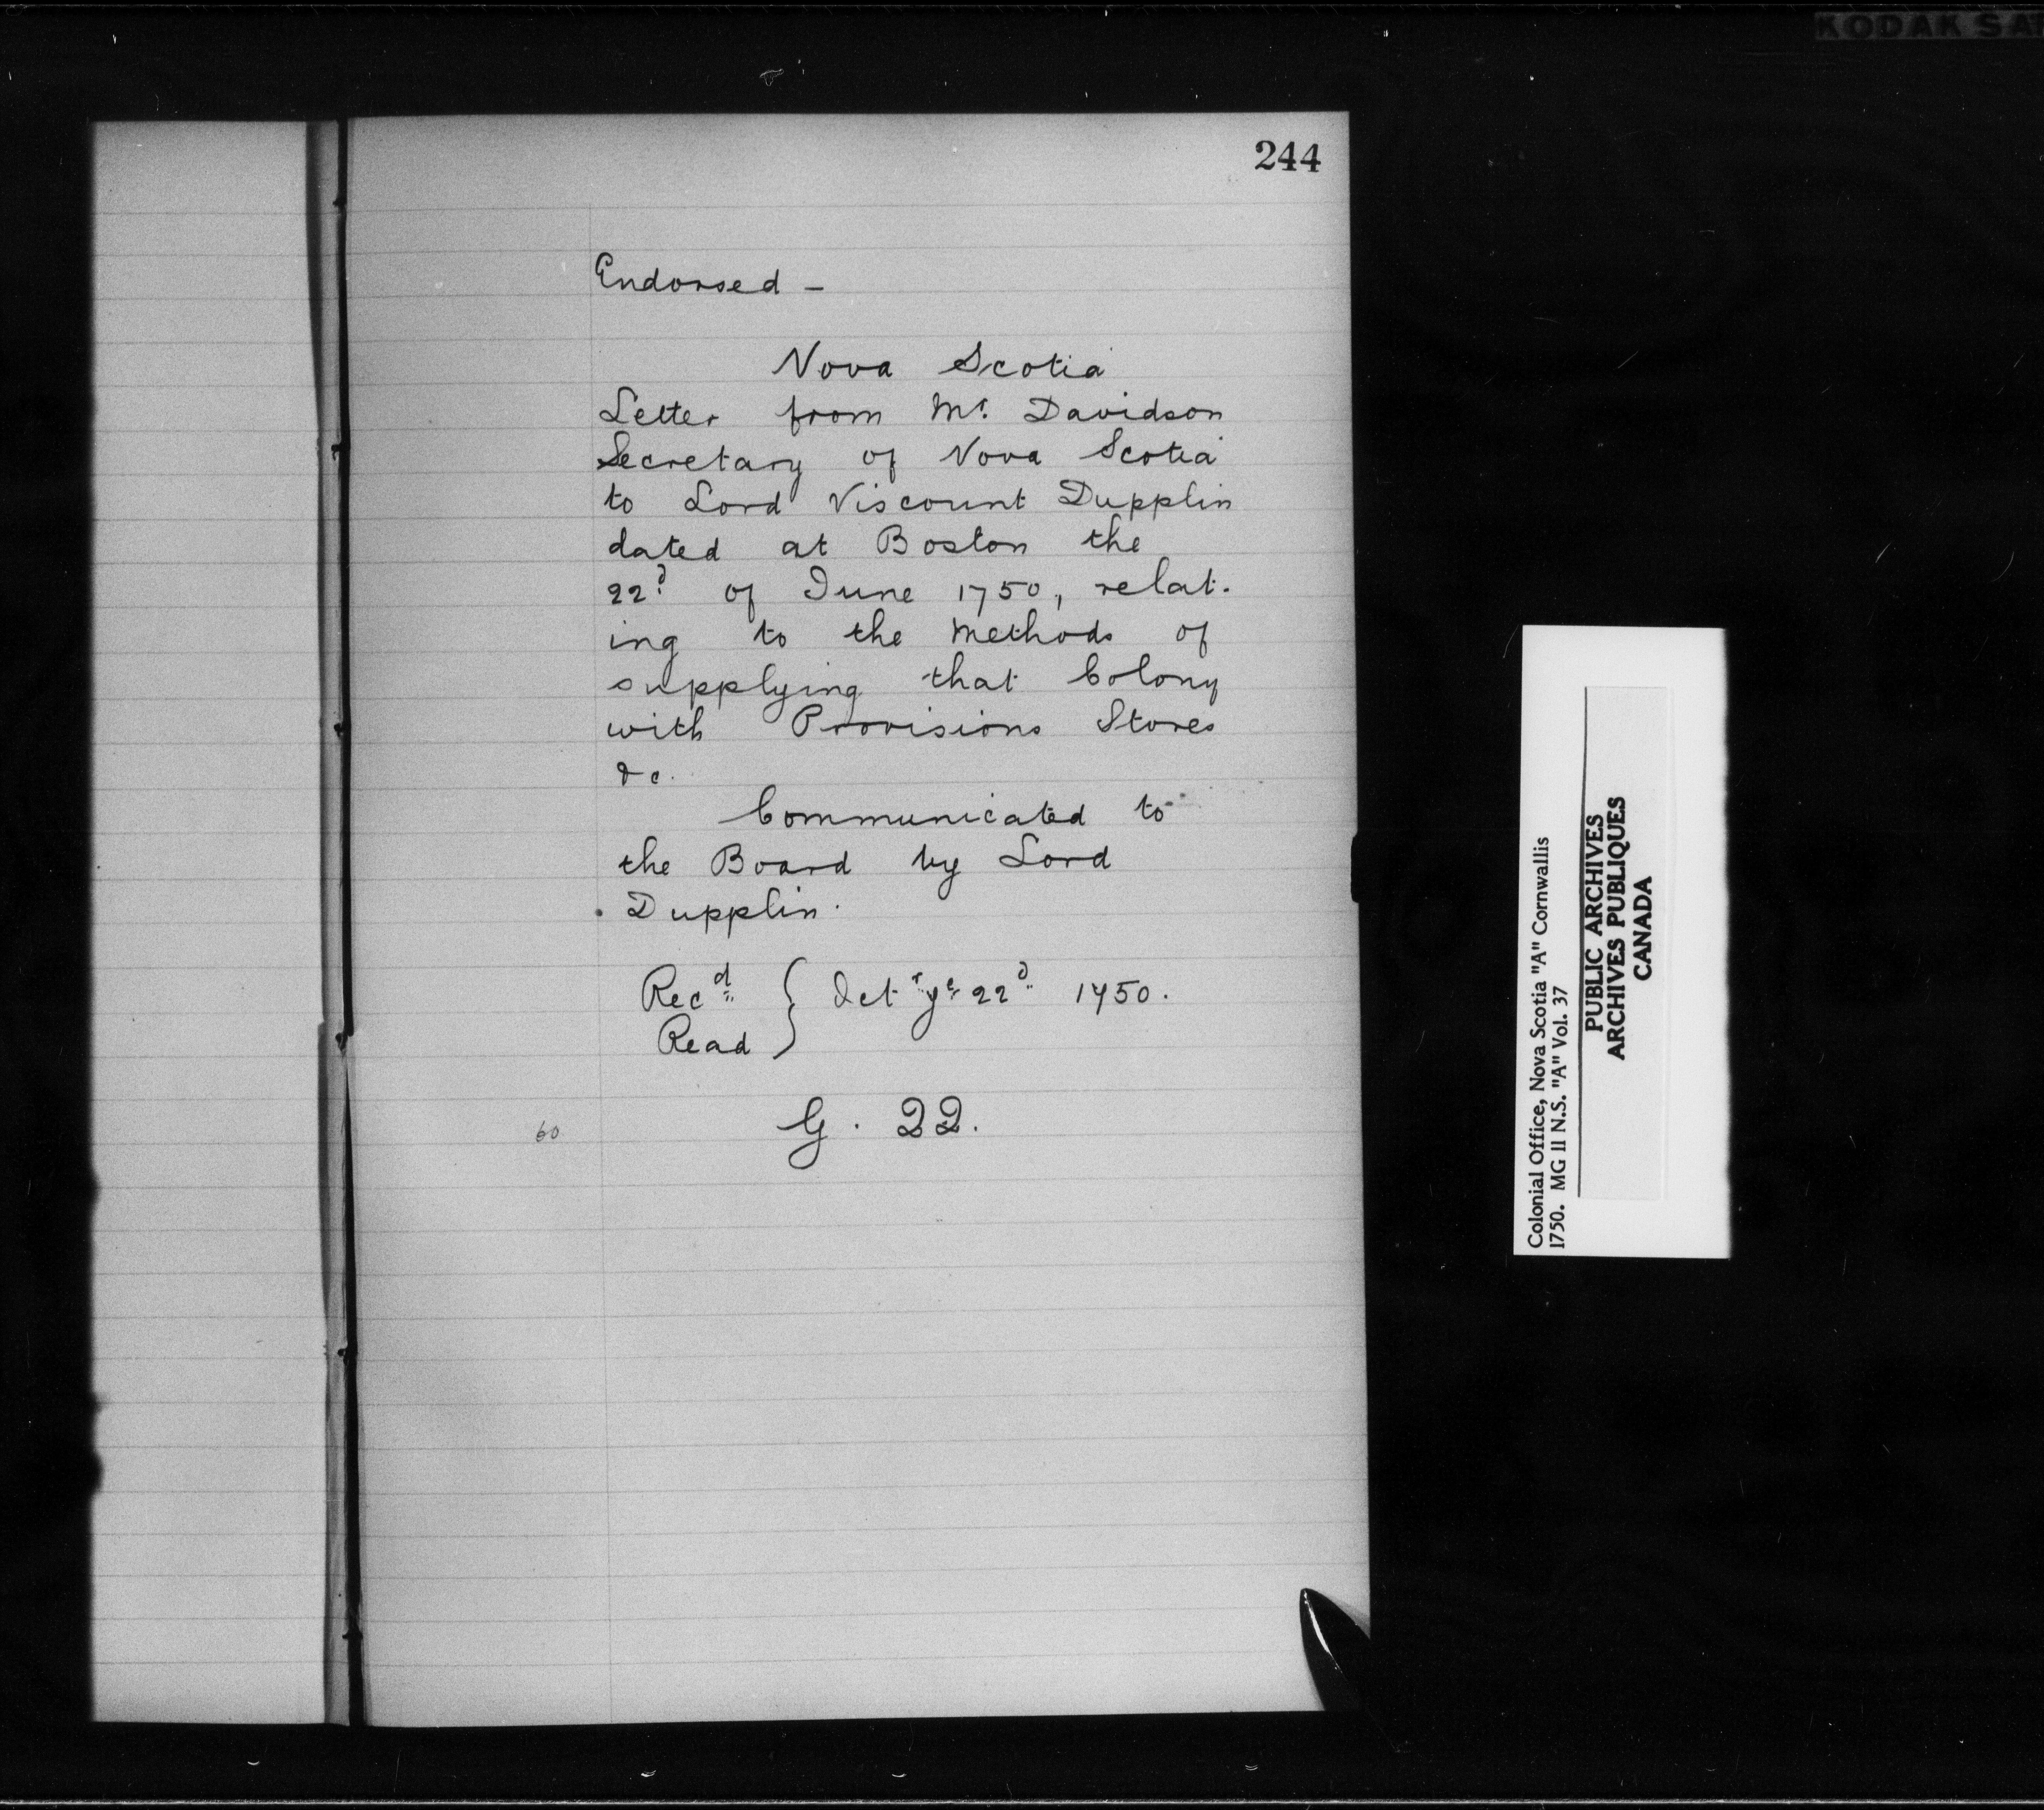 KODAK SA
244
Endorsed —
Nova Scotia
Letter from Mr. Davidson
Secretary of Nova Scotia
to Lord Viscount Dupplin
dated at Boston the
22d of June 1750, relat-
ing to the Methods of
supplying that Colony
with Provisions Stores
&c.
Communicated to
the Board by Lord
Dupplin.
Recd } Octr ye 22d 1750.
Read
60
G. 22.
Colonial Office, Nova Scotia "A" Cornwallis
1750. MG 11 N.S. "A" Vol. 37
PUBLIC ARCHIVES
ARCHIVES PUBLIQUES
CANADA